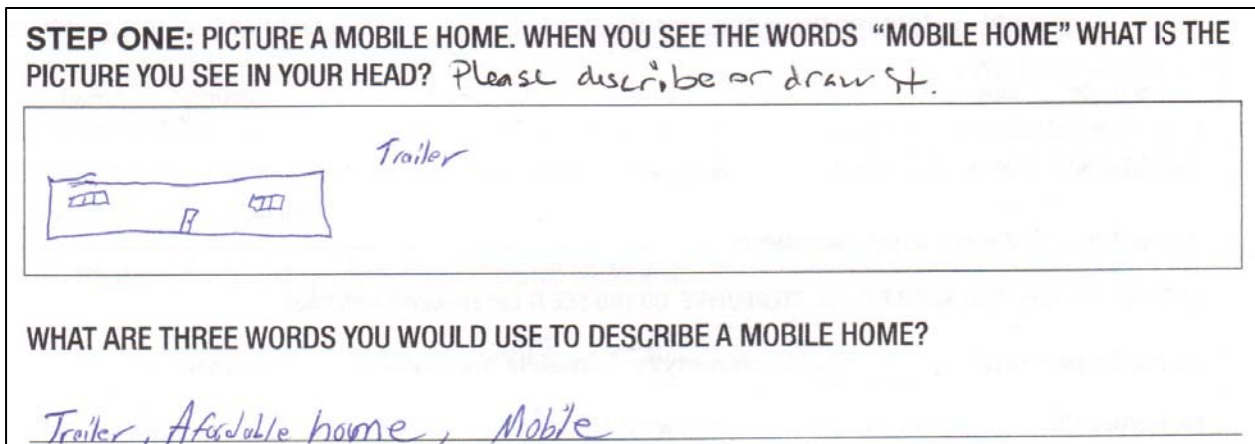 STEP ONE: PICTURE A MOBILE HOME. WHEN YOU SEE THE WORDS “MOBILE HOME” WHAT IS THE
PICTURE YOU SEE IN YOUR HEAD? Please describe or draw it.
Trailer
WHAT ARE THREE WORDS YOU WOULD USE TO DESCRIBE A MOBILE HOME?
Trailer, Afordable home, Mobile